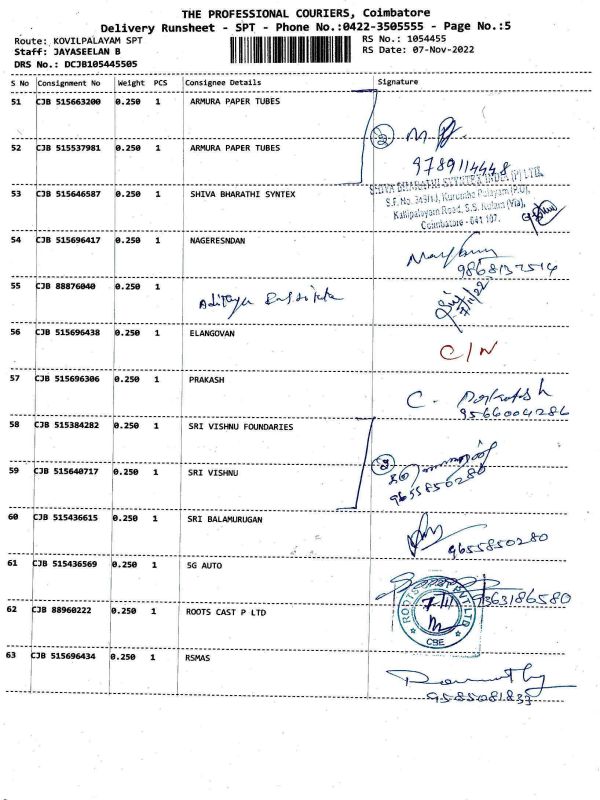 THE PROFESSIONAL COURIERS, Coimbatore
Delivery Runsheet - SPT - Phone No.:0422-3505555 - Page No.:5
Route: KOVILPALAYAM SPT RS No.: 1054455
Staff: JAYASEELAN B RS Date: 07-Nov-2022
DRS No.: DCJB105445505
S No Consignment No Weight PCS Consignee Details Signature
51 CJB 515663200 0.250 1 ARMURA PAPER TUBES
2
52 CJB 515537981 0.250 1 ARMURA PAPER TUBES
9789114448
53 CJB 515646587 0.250 1 SHIVA BHARATHI SYNTEX
SHIVA BHARATHI SYNTEX INDIA (P) LTD
S.F. No. 349/1J, Kurumba Palayam (P.O),
Kallipalayam Road, S.S. Kulam (Via),
Coimbatore - 641 107.
54 CJB 515696417 0.250 1 NAGERESNDAN
9868137514
55 CJB 88876040 0.250 1 Adithya
7/11/22
56 CJB 515696438 0.250 1 ELANGOVAN
C/N
57 CJB 515696306 0.250 1 PRAKASH
C.
9566004286
58 CJB 515384282 0.250 1 SRI VISHNU FOUNDARIES
2
59 CJB 515640717 0.250 1 SRI VISHNU
9655850280
60 CJB 515436615 0.250 1 SRI BALAMURUGAN
9655850280
61 CJB 515436569 0.250 1 5G AUTO
9363186580
62 CJB 88960222 0.250 1 ROOTS CAST P LTD
ROOTS PVT. LTD
7/11
CBE
63 CJB 515696434 0.250 1 RSMAS
9585081837